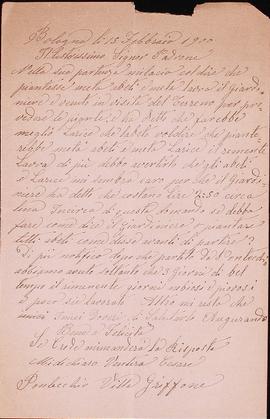 Bologna li 15 Febbraio 1900
Illustrissimo Signor Padrone
Nella sua partenza mi lasio col dire che
piantasse metà abeti e metà larici il Giardi-
niere è venuto in visita del Tereno per pro-
vedere le piante, e ha detto che sarebbe
meglio Larice che abete vol dire che piante-
rebbe metà abeti e metà Larice il rimanente
di più debbo avertirli che gli abeti
e Larice mi sembra caro per che il Giardi-
niere ha detto che costano Lire 2:50 circa
l'una Incerca di questa domanda se debbo
fare come dice il Giardiniere o piantar
tutti abeti come disse avanti di partire?
Di più notifico dopo che partito da Pontecchio
abbiamo avuto soltanto che 3 Giorni di bel
tempo il rimanente giorni nebiosi e piovosi
e poco si è lavorato. Altro mi resta che
miei doveri di Salutarlo Augurando
Bene e Felicità
Se Crede mi manderà la Risposta
Mi dichiaro Ventura Cesare
Pontecchio Villa Griffone